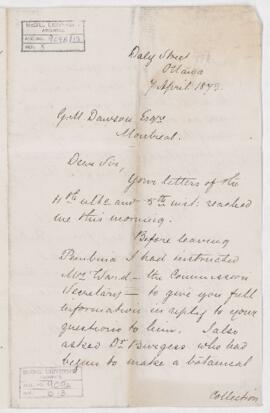 McGILL UNIVERSITY
ARCHIVES
ACC. NO.
REF. 5
Daly Street
Ottawa
7 April 1873.
G. M. Dawson Esqre
Montreal.
Dear Sir,
Your letters of the
11th ulto. and 5th inst: reached
me this morning.
Before leaving
Pembina I had instructed
Mr. Ward – the Commission
Secretary – to give you full
information in reply to your
questions to him. I also
asked Dr. Burgess who had
begun to make a botanical
McGILL UNIVERSITY
ARCHIVES
ACC. NO. 909
REF.
Collection